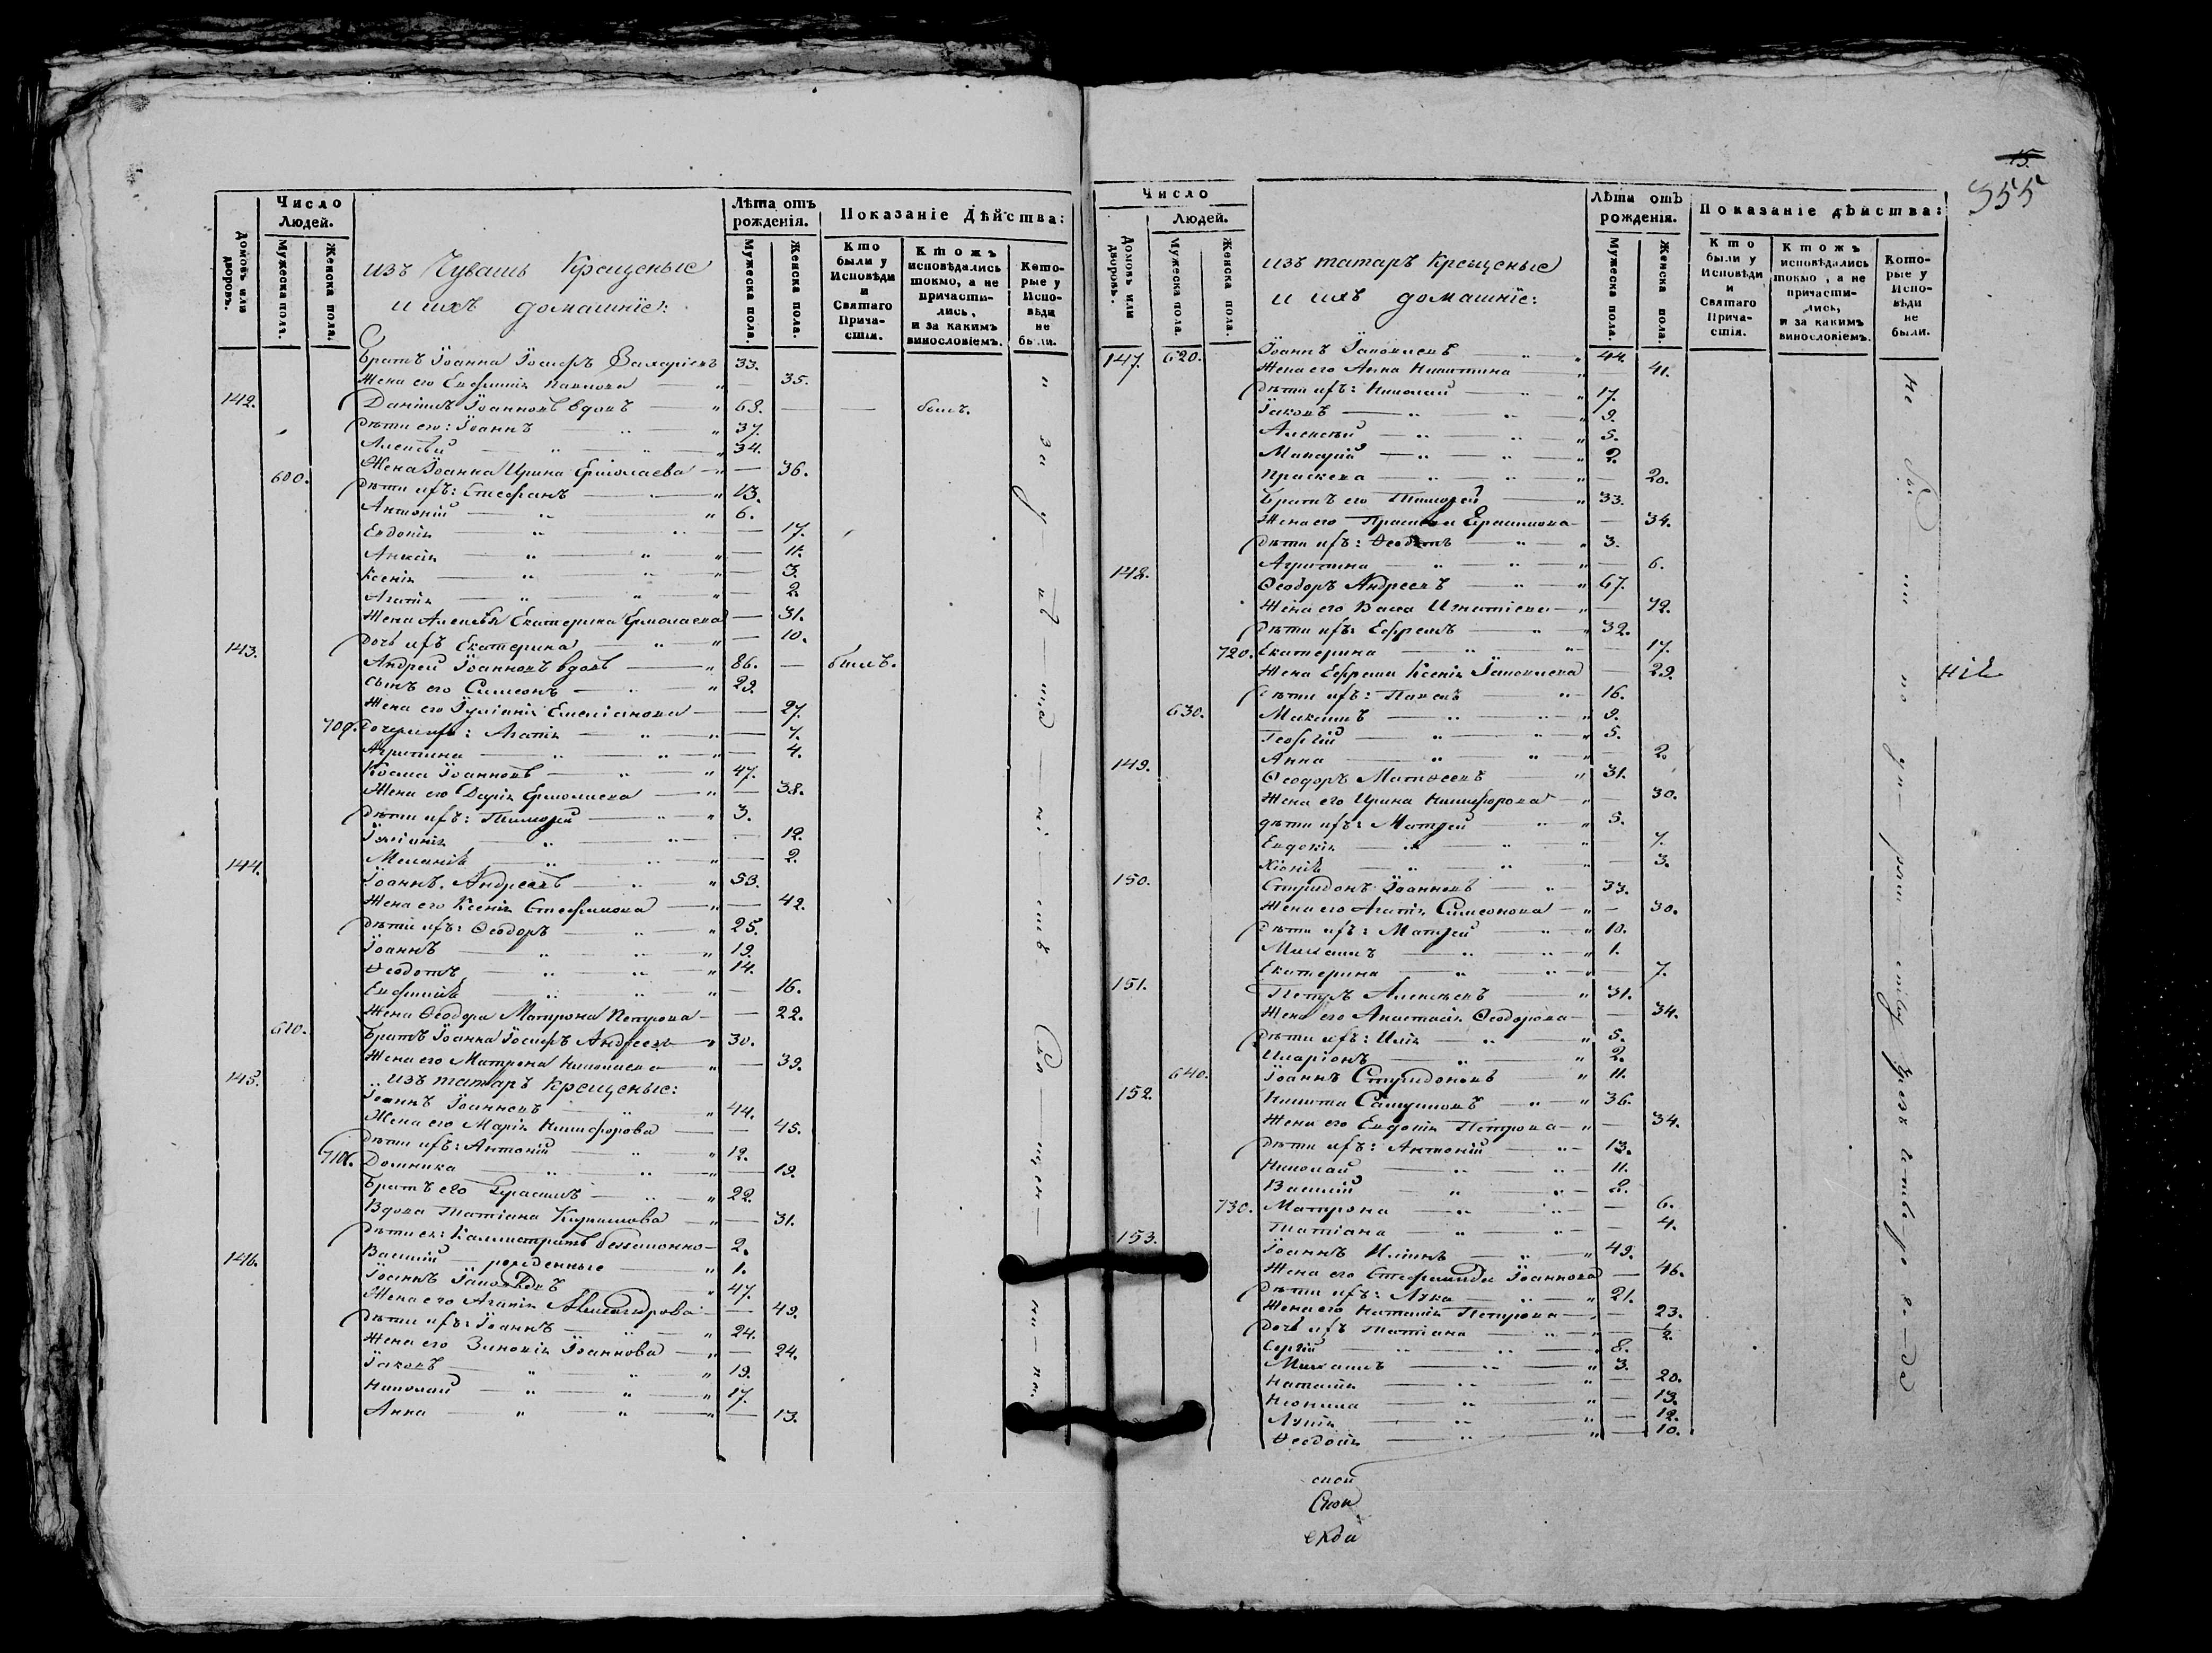 Число
Людей.
Домовъ или дворовъ.
Мужеска полъ.
Женска пола.
изъ Чувашъ Крещеные
и ихъ домашніе:
Лѣта отъ
рожденія.
Мужеска пола.
Женска пола.
Показаніе Дѣйства:
Кто были у Исповѣди и Святаго Причастія.
Ктожъ исповѣдались токмо, а не причастились, и за какимъ винословіемъ.
Которые у Исповѣди не были.
Братъ Іоанна Іосифъ Захаріевъ 33.
Жена его Евфимія Павлова — 35.
142. Даніилъ Іоанновъ вдовъ — 63. — — былъ.
Дѣти его: Іоаннъ 37.
Алексѣй 34.
Жена Іоанна Ирина Ермолаева — 36.
600. Дѣти ихъ: Стефанъ 13.
Антоній 6.
Евдокія — 17.
Анисія — 11.
Ксенія — 3.
Агафія — 2.
Жена Алексѣя Екатерина Ермолаева — 31.
Дочь ихъ Екатерина — 10.
143. Андрей Іоанновъ вдовъ — 86. — былъ.
Сынъ его Симеонъ 29.
Жена его Іуліанія Емеліанова — 27.
700. Дочери ихъ: Агафія — 7.
Агрипина — 4.
Косма Іоанновъ 47.
Жена его Дарія Ермолаева — 38.
Дѣти ихъ: Тимофей 3.
Іуліанія — 12.
Меланія — 2.
144. Іоаннъ Андреевъ 53.
Жена его Ксенія Стефанова — 42.
Дѣти ихъ: Ѳеодоръ 25.
Іоаннъ 19.
Ѳеодотъ 14.
Евфимія — 16.
Жена Ѳеодора Матрона Петрова — 22.
610. Братъ Іоанна Іосифъ Андреевъ 30.
Жена его Матрона Николаева — 39.
изъ татаръ крещеные:
145. Іоаннъ Іоанновъ 44.
Жена его Марія Никифорова — 45.
Дѣти ихъ: Антоній 12.
710. Домника — 19.
Братъ его Герасимъ 22.
Вдова Татіана — 31.
Дѣти ея: Каллистратъ беззаконно — 2.
Василій рожденные 1.
146. Іоаннъ Іаковлевъ 47.
Жена его Агапія Александрова — 49.
Дѣти ихъ: Іоаннъ 24.
Жена его Зиновія Іоаннова — 24.
Іаковъ 19.
Николай 17.
Анна — 13.
15.
355
Число
Людей.
Домовъ или дворовъ.
Мужеска пола.
Женска пола.
изъ татаръ крещеные
и ихъ домашніе:
Лѣта отъ
рожденія.
Мужеска пола.
Женска пола.
Показаніе дѣйства:
Кто были у Исповѣди и Святаго Причастія.
Ктожъ исповѣдались токмо, а не причастились, и за какимъ винословіемъ.
Которые у Исповѣди не были.
147. 620. Іоаннъ Іаковлевъ 44.
Жена его Анна Никитина — 41.
Дѣти ихъ: Николай 17.
Іаковъ 9.
Алексѣй 5.
Макарій 2.
Праскева — 20.
Братъ его Тимофей 33.
Жена его — 34.
Дѣти ихъ: Ѳеодотъ 3.
Агрипина — 6.
148. Ѳеодоръ Андреевъ 67.
Жена его Васса Игнатіева — 72.
Дѣти ихъ: Ефремъ 32.
720. Екатерина — 17.
Жена Ефрема Ксенія Іаковлева — 29.
Дѣти ихъ: Павелъ 16.
630. Максимъ 9.
Георгій 5.
Анна — 2.
149. Ѳеодоръ Матвеевъ 31.
Жена его Ирина Никифорова — 30.
Дѣти ихъ: Матфей 5.
Евдокія — 7.
Хіонія — 3.
150. Спиридонъ Іоанновъ 33.
Жена его Агафія Симеонова — 30.
Дѣти ихъ: Матфей 10.
Михаилъ 1.
Екатерина — 7.
151. Петръ Алексѣевъ 31.
Жена его Анастасія Ѳеодорова — 34.
Дѣти ихъ: Илія 5.
Иларіонъ 2.
640. Іоаннъ Спиридоновъ 11.
152. Никита 36.
Жена его Евдокія Петрова — 34.
Дѣти ихъ: Антоній 13.
Николай 11.
Василій 8.
730. Матрона — 6.
Татіана — 4.
153. Іоаннъ Ильинъ 49.
Жена его Стефанида Іоаннова — 46.
Дѣти ихъ: Лука 21.
Жена его Наталія Петрова — 23.
Дочь ихъ Татіана — ½
Сергій 8.
Михаилъ 3.
Наталія — 20.
Неонила — 13.
— 12.
— 10.